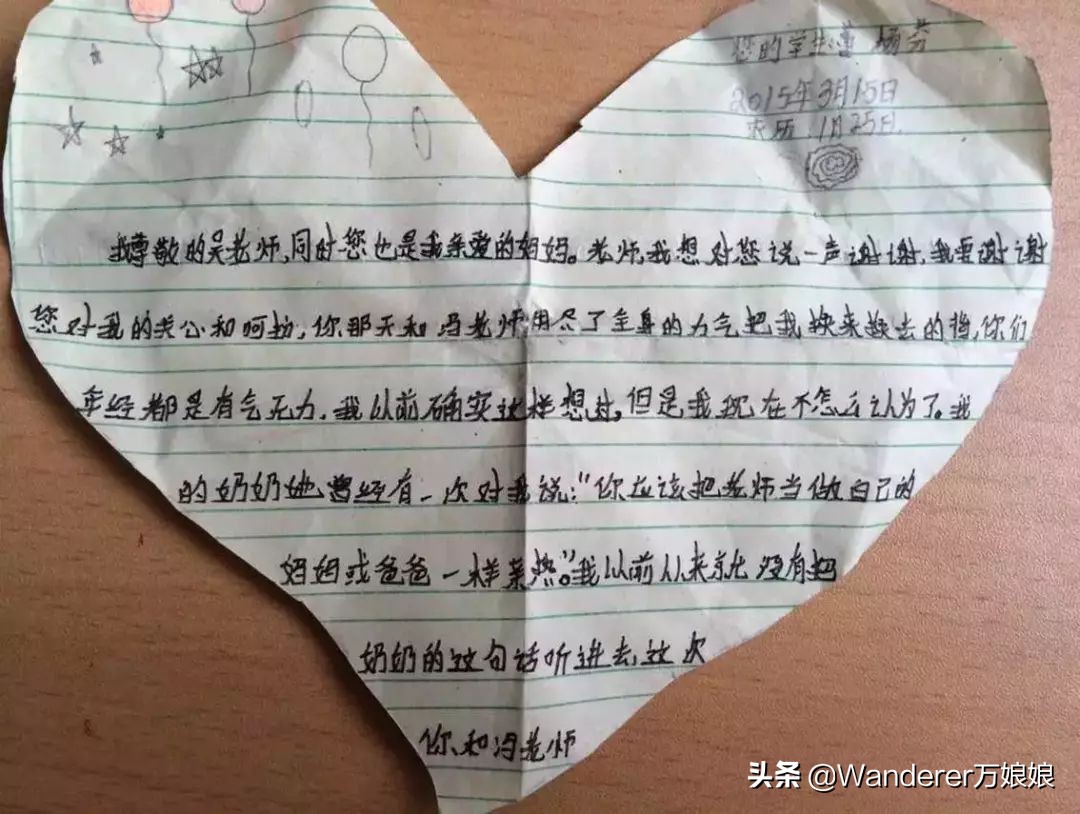 您的学生:曹杨芬
2015年3月15日
农历1月25日
我尊敬的吴老师,同时您也是我亲爱的妈妈。老师,我想对您说一声谢谢,我要谢谢
您对我的关心和呵护,你那天和冯老师用尽了全身的力气把我换来换去的
你们
都是有气无力,我以前确实这样想过,但是我现在不怎么认为了。我
的奶奶她曾经有一次对我说:“你应该把老师当做自己的
妈妈或爸爸一样亲热”。我以前从来就没有把
奶奶的这句话听进去,这次
你、和冯老师
头条 @Wanderer万娘娘